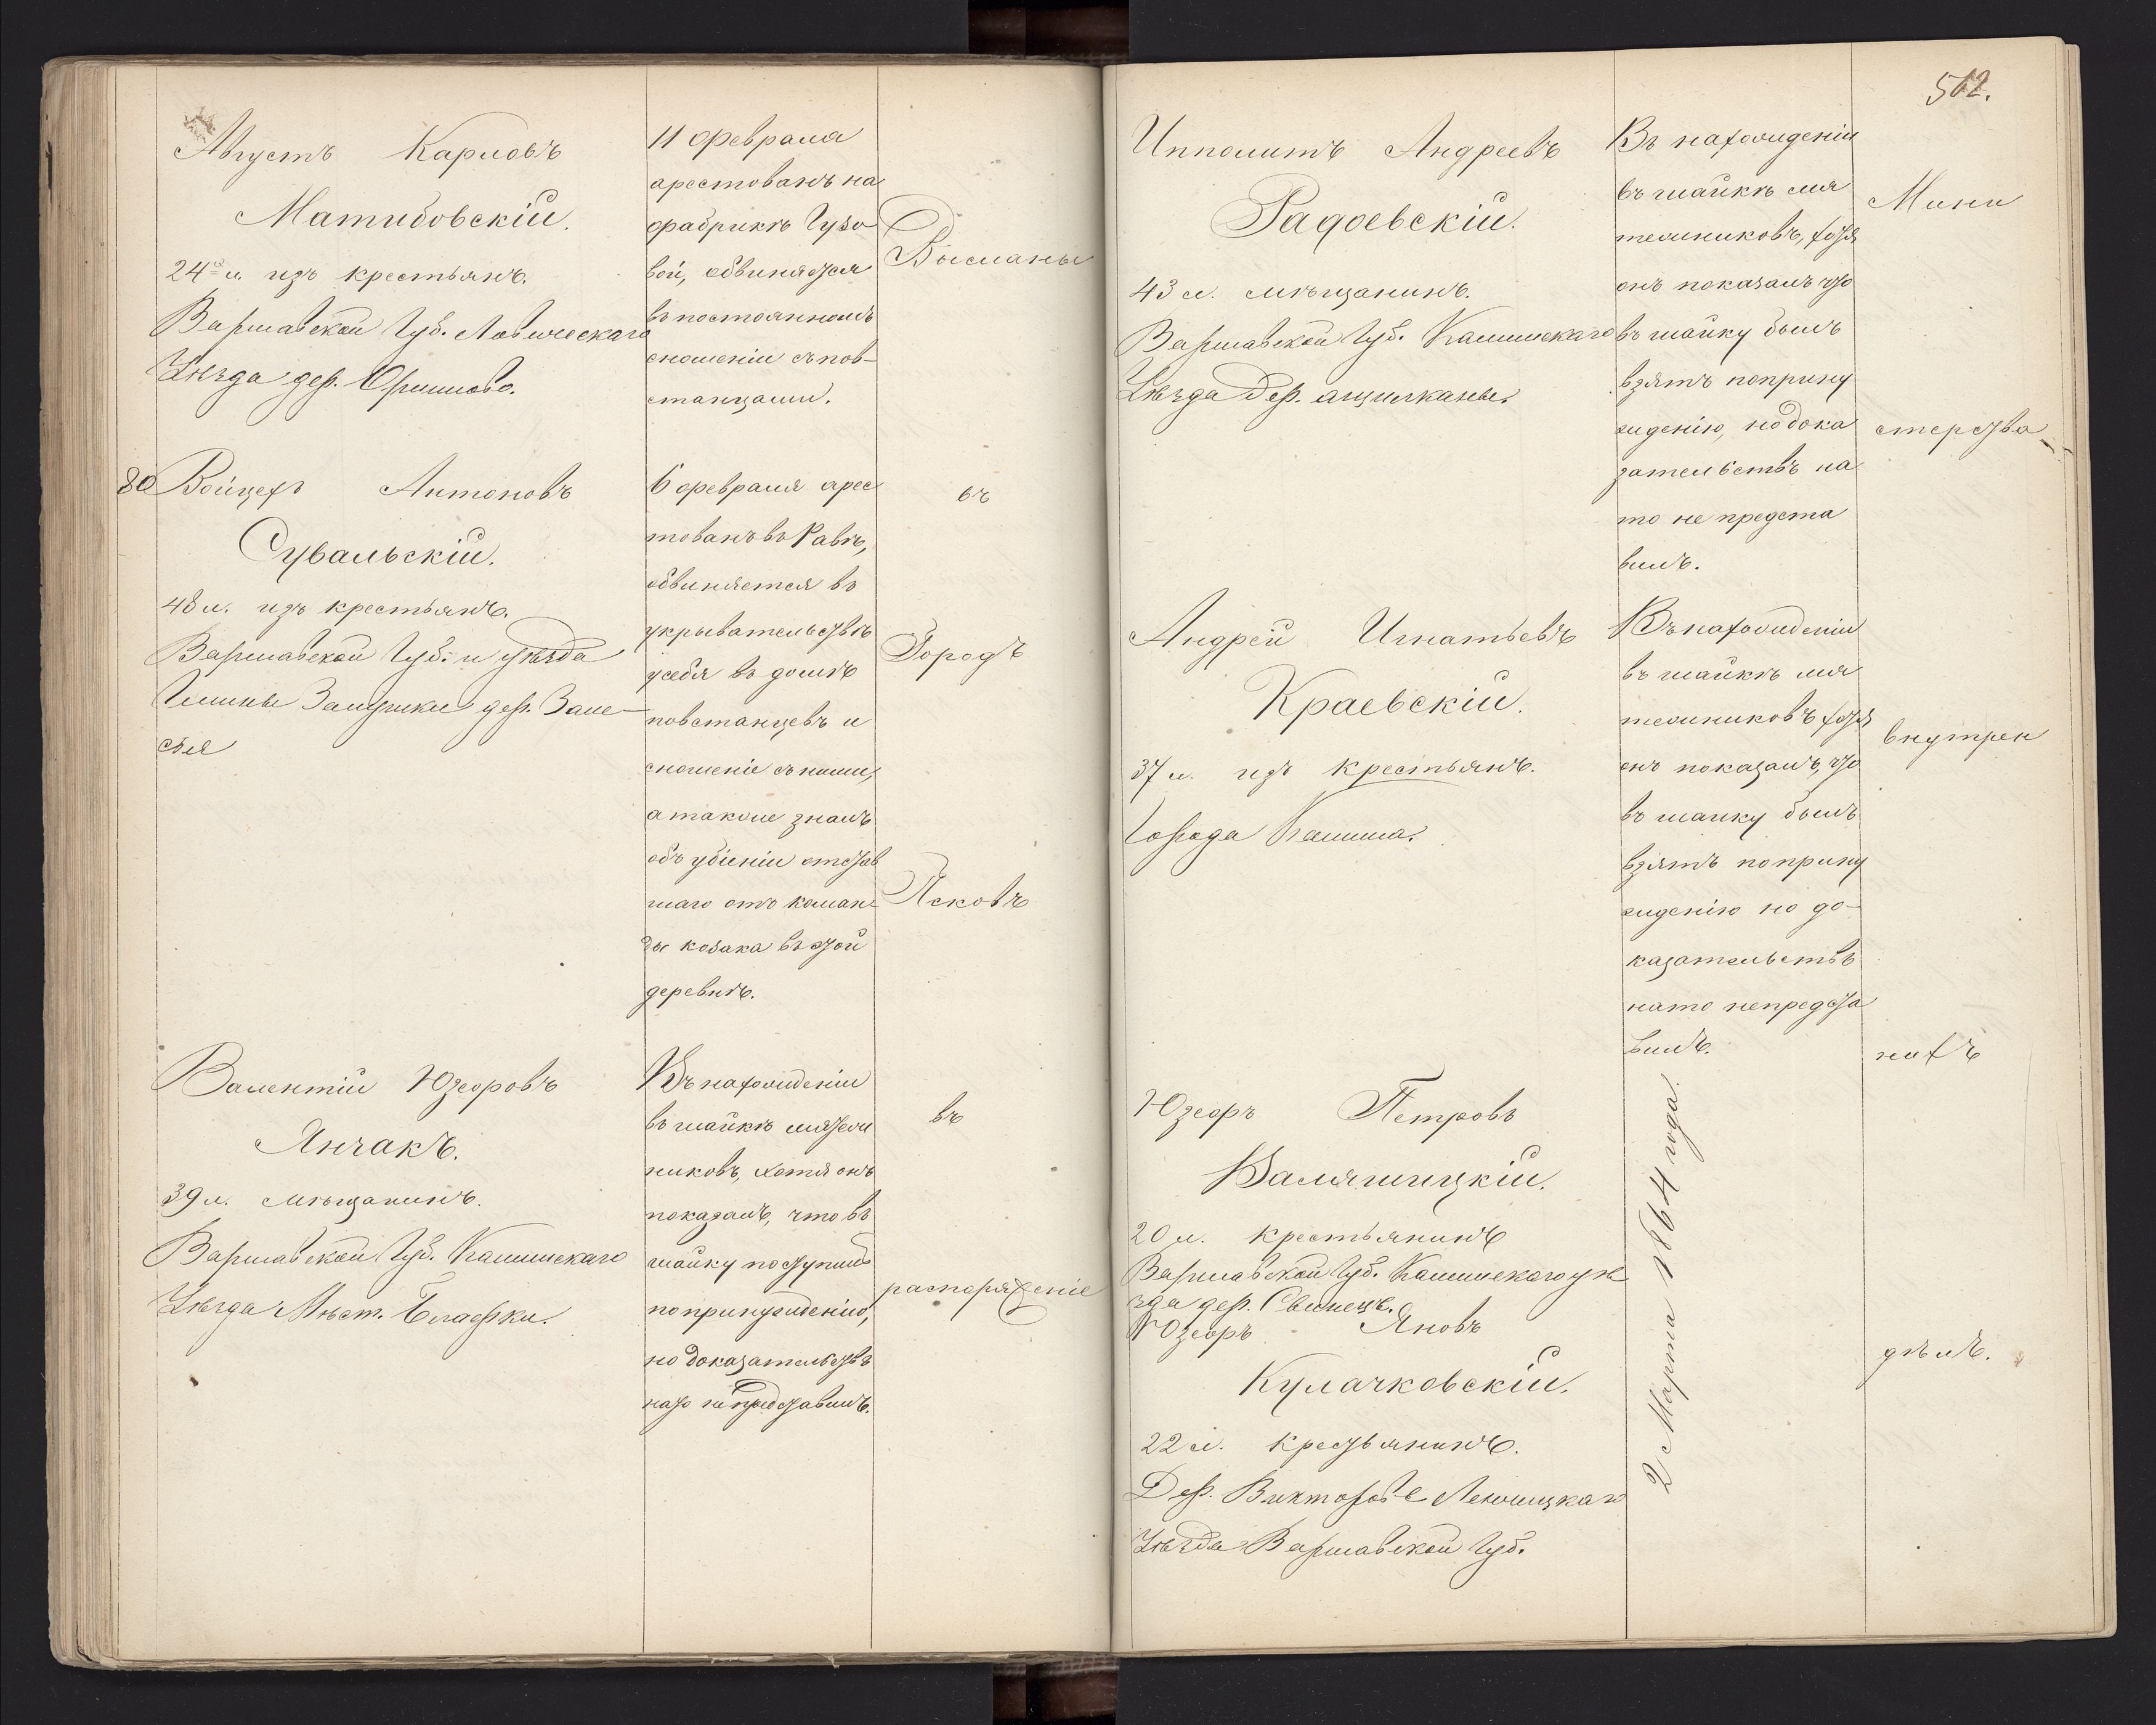 Августъ Карловъ
Матибовскій.
24 л. изъ крестьянъ.
Варшавской Губ. Ловическаго
Уѣзда дер.
11 февраля
арестованъ на
фабрикѣ Гузо
вой, обвиняется
въ постоянномъ
сношеніи съ пов-
станцами.
Высланы
80 Войцехъ Антоновъ
Сувальскій.
48 л. изъ крестьянъ.
Варшавской Губ. и уѣзда
Гмины дер. Заме-
6 февраля арес
тованъ въ Равѣ,
обвиняется въ
укрывательствѣ
у себя въ домѣ
повстанцевъ и
сношеніе съ ними,
а также зналъ
объ убіеніи отстав
шаго отъ коман-
ды козака въ этой
деревнѣ.
въ
Городъ
Псковъ
Валентій Юзефовъ
Янчакъ.
39 л. мѣщанинъ.
Варшавской Губ. Калишскаго
Уѣзда Мѣст. Блашки.
Въ нахожденіи
въ шайкѣ мятеж
никовъ, хотя онъ
показалъ, что въ
шайку поступилъ
по принужденію,
но доказательствъ
на то не представилъ.
въ
распоряженіе
512.
Ипполитъ Андреевъ
Радоевскій.
43 л. мѣщанинъ.
Варшавской Губ. Калишскаго
Уѣзда Дер.
Въ нахожденіи
въ шайкѣ мя
тежниковъ, хотя
онъ показалъ что
въ шайку былъ
взятъ по прину
жденію, но дока
зательствъ на
то не предста
вилъ.
Мини
стерства
Андрей Игнатьевъ
Краевскій.
37 л. изъ крестьянъ.
Города Калиша.
Въ нахожденіи
въ шайкѣ мя
тежниковъ хотя
онъ показалъ, что
въ шайку былъ
взятъ по прину
жденію но до-
казательствъ
на то не предста
вилъ.
внутрен
нихъ
Юзефъ Петровъ
Валяшицкій.
20 л. крестьянинъ
Варшавской Губ. Калишскаго уѣ
зда дер. Свинецъ.
Юзефъ Яновъ
Кулачковскій.
22 л. крестьянинъ.
Дер. Викторовъ Ленчицкаго
Уѣзда Варшавской Губ.
2 Марта 1864 года.
дѣлъ.